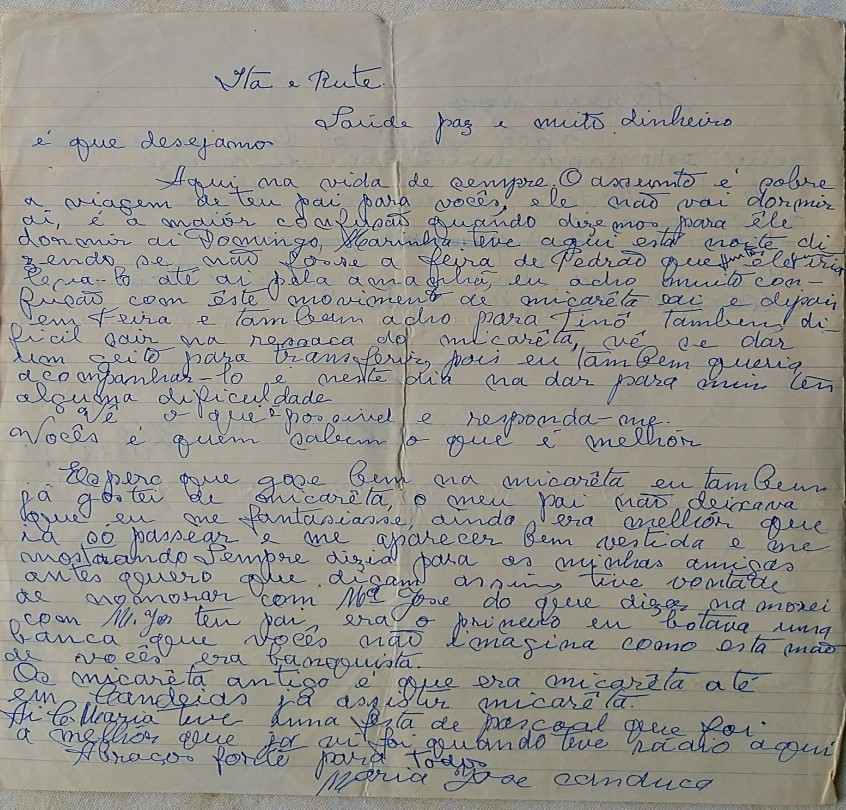 Ita e Rute
Saúde paz e muito dinheiro
é que desejamo
Aqui na vida de sempre, O assunto é sobre
a viagem de teu pai para vocês, ele não vai dormir
ai, é a maiór confusão quando dizemos para êle
dormir ai Domingo, Marinha teve aqui esta noite di-
zendo se não fosse a feira de Pedrão que
leva-lo até ai pela amanhã, eu acho muito con-
fusão com êste movimento de micarêta ai e depois
em Feira e tambem acho para Tinô tambem di-
ficil sair na ressaca do micarêta, vê se dar
um geito para transferir, pois eu tambem queria
acompanhar-lo e neste dia na dar para mim tên
alguma dificuldade
Vê o que é possivel e responda-me.
Vocês é quem sabem o que é melhór
Espero que gose bem na micarêta eu tambem
já gostei de micarêta, o meu pai não deixava
que eu me fantasiasse, ainda era melhor que
ia só passear e me aparecer bem vestida e me
mostrando Sempre dizia para as minhas amigas
antes quero que diçam assim, tive vontade
de namorar com Mª Jose do que dizer namorei
com M. Jos teu pai, era o primeiro eu botava uma
banca que vocês não imagina como esta mão
de vocês era banquista.
Os micarêta antigo é que era micarêta até
em Candeias já assistir micarêta.
Ai teve uma festa de pascoal que foi
a melhor que já vi foi quando teve rádio aqui
Abraços forte para todos
Maria Jose canduca